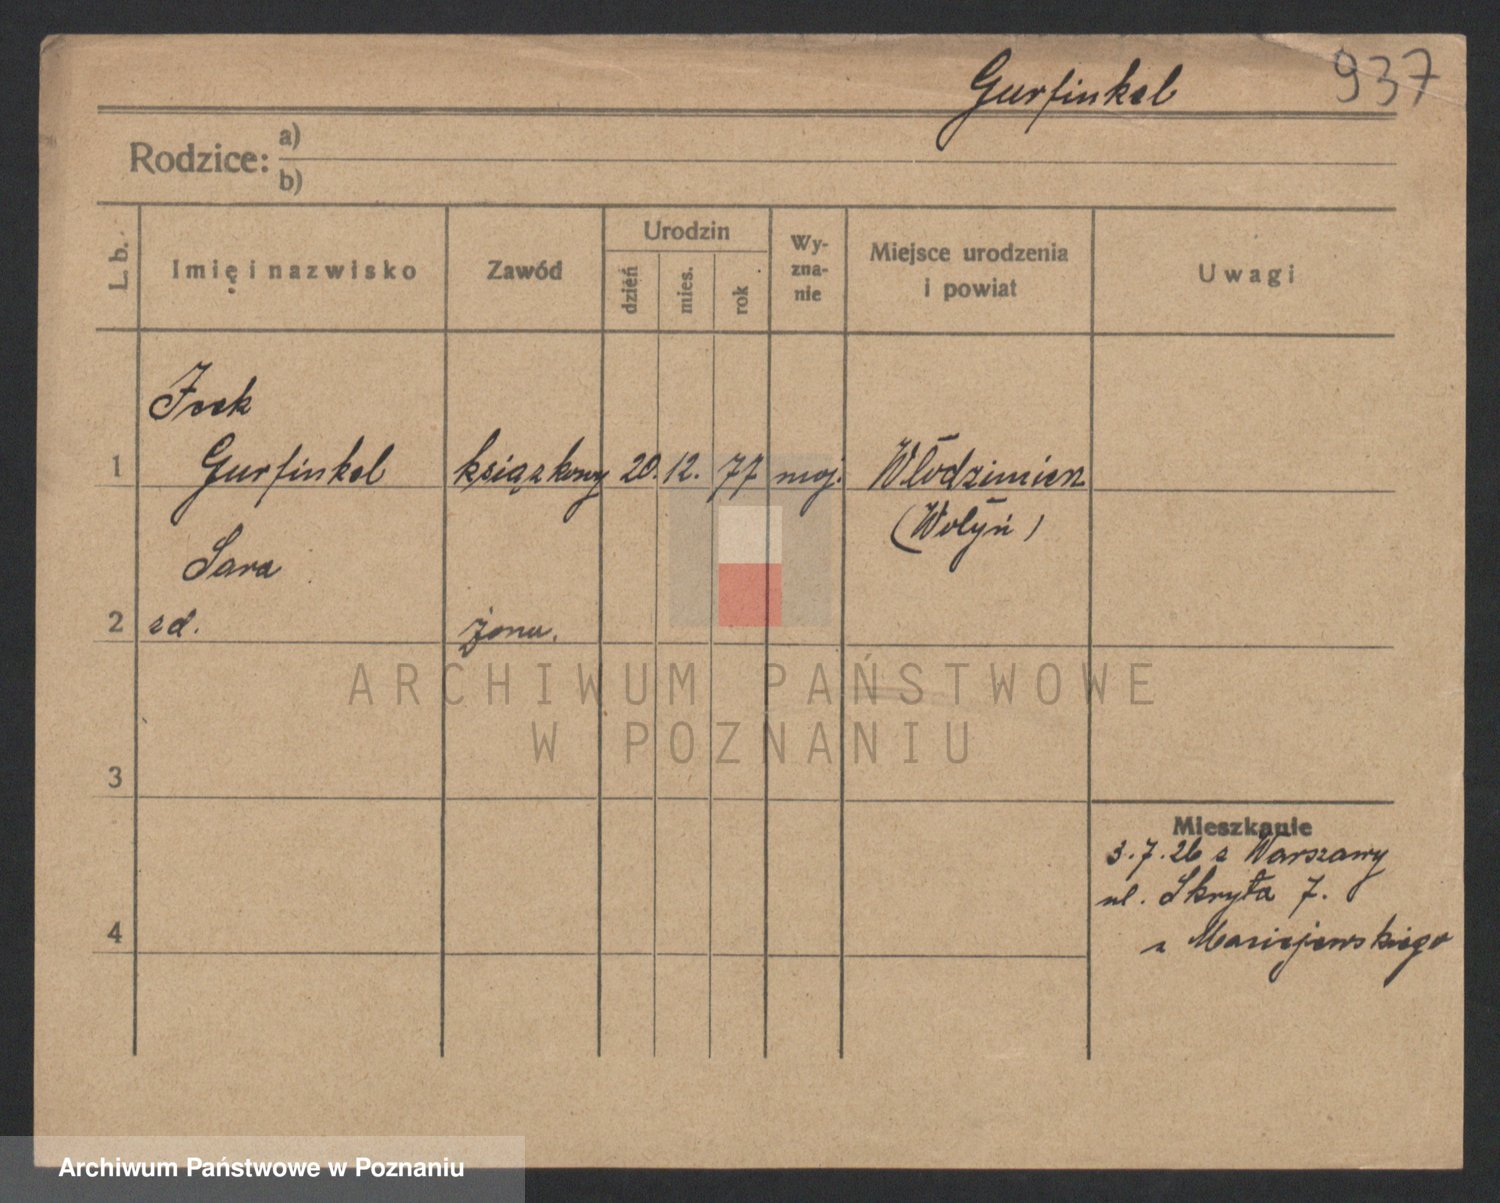 Gurfinkel 937
Rodzice: a)
b)
L. b. Imię i nazwisko Zawód Urodzin dzień mies. rok Wy-zna-nie Miejsce urodzenia i powiat Uwagi
Icek
1 Gurfinkel książkowy 20. 12. 77 moj. Włodzimierz
(Wołyń)
Sara
2 zd. żona.
ARCHIWUM PAŃSTWOWE
W POZNANIU
3
Mieszkanie
3.7.26 z Warszawy
ul. Skryta 7.
4 u Maciejewskiego
Archiwum Państwowe w Poznaniu